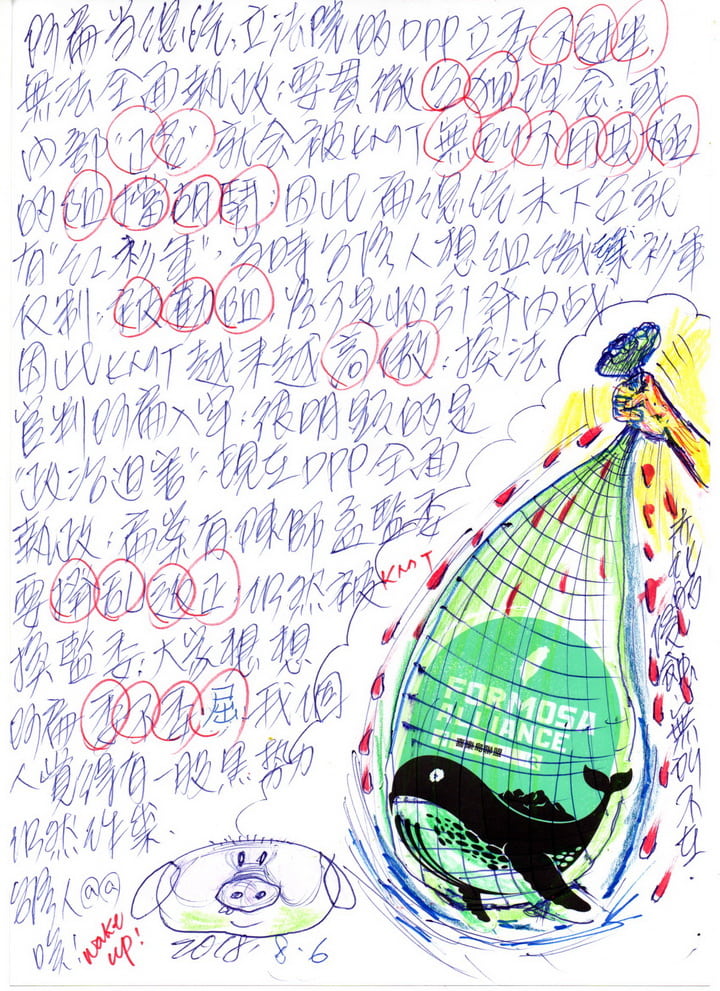 阿扁当總統:立法院的DPP立委不过半,
無法全面執政:要貫徹台独理念:或
內部"正名"就会被KMT無所不用其極
的阻擋胡鬧:因此扁總統末下台就
有"紅衫軍":當時台派人想組織綠衫軍
反制:被勸阻:
因此KMT越來越高傲:換法
官判阿扁入牢:很明顯的是
"政治迫害":現在DPP全面
執政:扁案有陳師孟監委
要撥亂反正:仍然被KMT
換監委:大家想想
的扁委不委屈:我個
人覺得有一股黑勢力
仍然作祟.
台派人@@
唉!wake up!
2018.8.6
FORMOSA
ALLIANCE
喜樂島聯盟
無所不在.